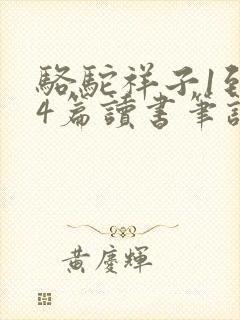 駱駝祥子1到
4篇讀書筆記
黃慶輝